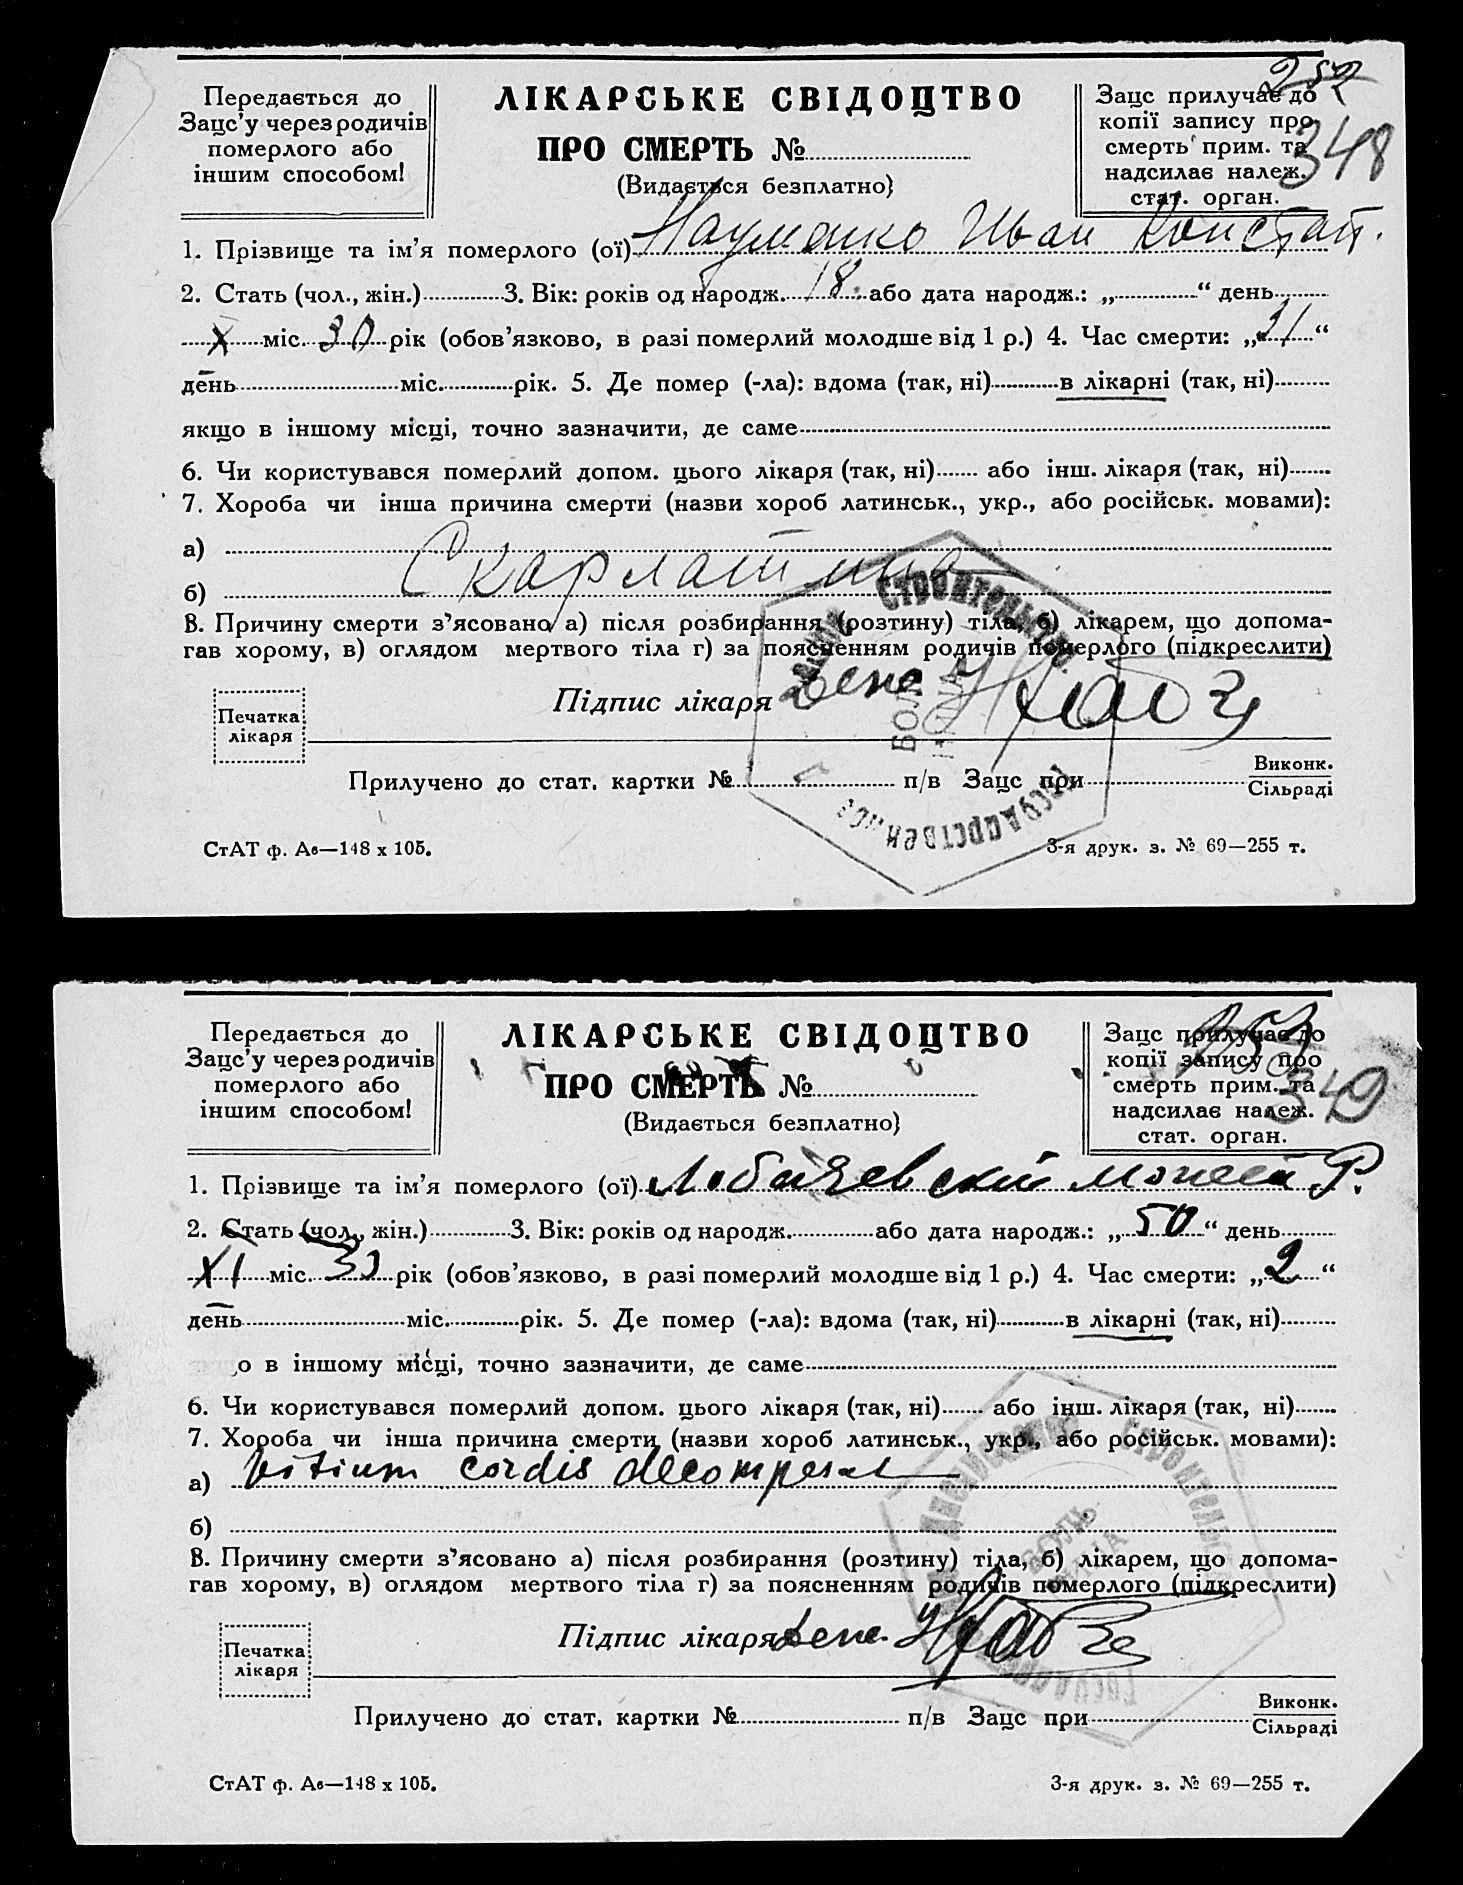 252
348
Передається до
Зацс'у через родичів
померлого або
іншим способом!
ЛІКАРСЬКЕ СВІДОЦТВО
ПРО СМЕРТЬ №
(Видається безплатно)
Зацс прилучає до
копії запису про
смерть прим. та
надсилає належ.
стат. орган.
1. Прізвище та ім'я померлого (ої) Науменко Иван Констант.
2. Стать (чол., жін.) 3. Вік: років од народж. 18. або дата народж.: „ “ день
X міс. 30 рік (обов'язково, в разі померлий молодше від 1 р.) 4. Час смерти: „31“
день міс. рік. 5. Де помер (-ла): вдома (так, ні) в лікарні (так, ні)
якщо в іншому місці, точно зазначити, де саме
6. Чи користувався померлий допом. цього лікаря (так, ні) або інш. лікаря (так, ні)
7. Хороба чи інша причина смерти (назви хороб латинськ., укр., або російськ. мовами):
а)
Скарлатина
б)
8. Причину смерти з'ясовано а) після розбирання (розтину) тіла, б) лікарем, що допома-
гав хорому, в) оглядом мертвого тіла г) за поясненням родичів померлого (підкреслити)
Підпис лікаря
Печатка
лікаря
Прилучено до стат. картки № п/в Зацс при Виконк.
Сільраді
СтАТ ф. А6—148 х 105.
3-я друк. з. № 69—255 т.
Строительст
БОЛЬ
НИЦА
Государственное
349
Передається до
Зацс'у через родичів
померлого або
іншим способом!
ЛІКАРСЬКЕ СВІДОЦТВО
ПРО СМЕРТЬ №
(Видається безплатно)
Зацс прилучає до
копії запису про
смерть прим. та
надсилає належ.
стат. орган.
1. Прізвище та ім'я померлого (ої) Р.
2. Стать (чол., жін.) 3. Вік: років од народж. або дата народж.: „50“ день
XI міс. 30 рік (обов'язково, в разі померлий молодше від 1 р.) 4. Час смерти: „2“
день міс. рік. 5. Де помер (-ла): вдома (так, ні) в лікарні (так, ні)
о в іншому місці, точно зазначити, де саме
6. Чи користувався померлий допом. цього лікаря (так, ні) або інш. лікаря (так, ні)
7. Хороба чи інша причина смерти (назви хороб латинськ., укр., або російськ. мовами):
а) Vitium cordis decompensat
б)
8. Причину смерти з'ясовано а) після розбирання (розтину) тіла, б) лікарем, що допома-
гав хорому, в) оглядом мертвого тіла г) за поясненням родичів померлого (підкреслити)
Підпис лікаря
Печатка
лікаря
Прилучено до стат. картки № п/в Зацс при Виконк.
Сільраді
СтАТ ф. А6—148 х 105.
3-я друк. з. № 69—255 т.
БОЛЬ
НИЦА